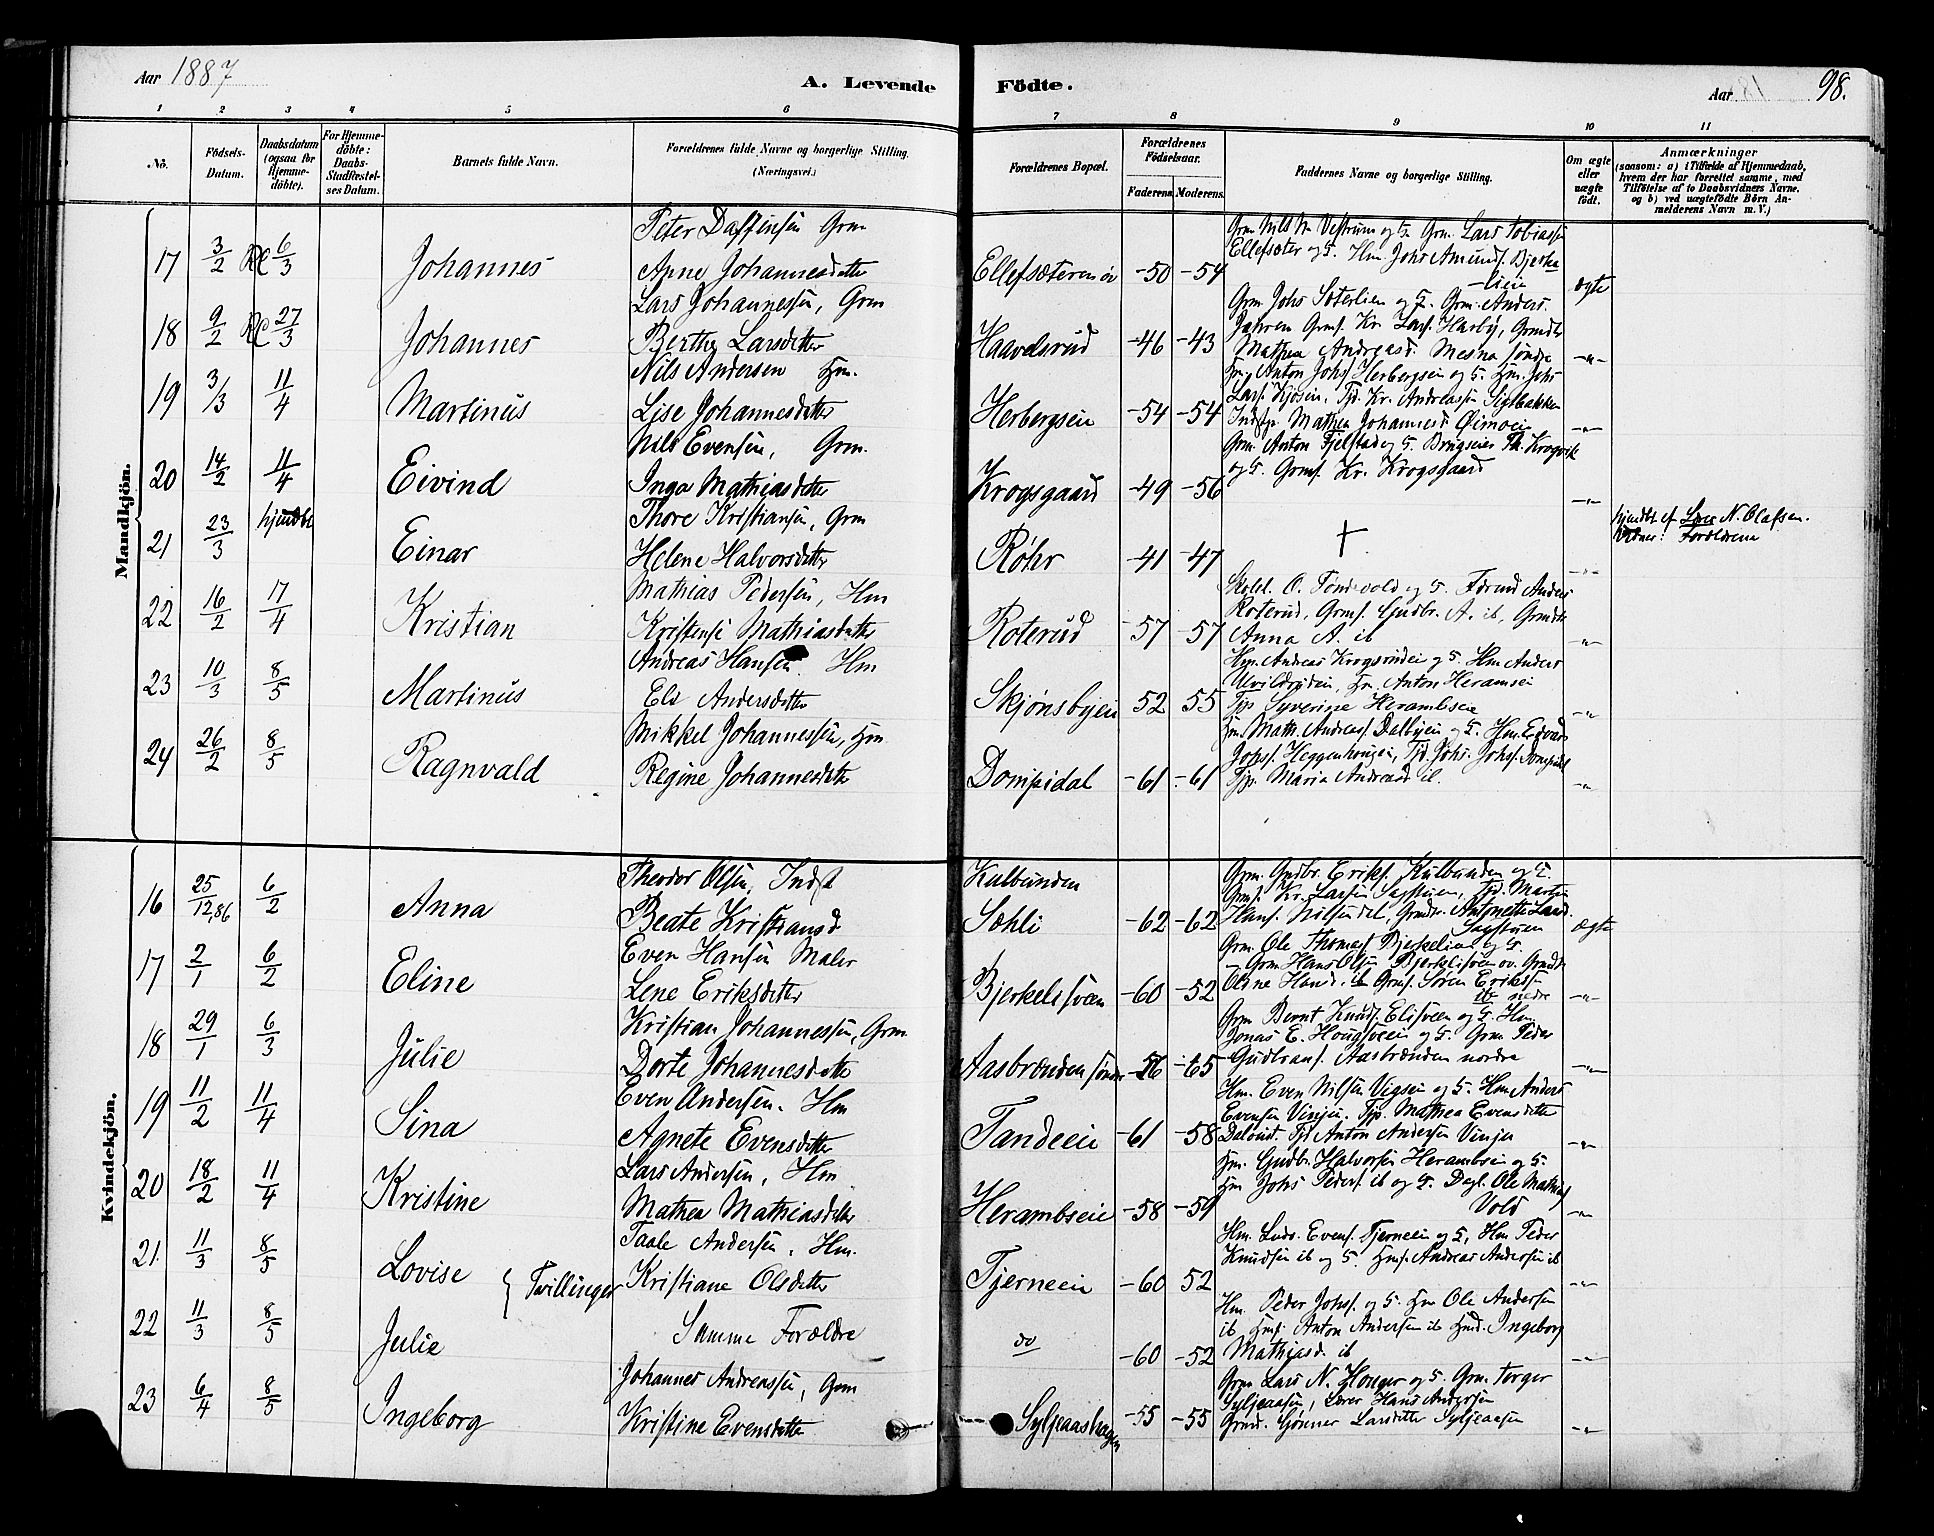 Aar 1887
A. Levende
Födte.
Aar 18
98.
1 2 3 4 5 6 7 8 9 10 11
No.
Födsels-Datum.
Daabsdatum (ogsaa for Hjemme-döbte).
For Hjemme-döbte: Daabs-Stadfæstel-ses Datum.
Barnets fulde Navn.
Forældrenes fulde Navne og borgerlige Stilling. (Næringsvei.)
Forældrenes Bopæl.
Forældrenes Födselsaar.
Faderens. Moderens.
Faddernes Navne og borgerlige Stilling.
Om ægte eller uægte födt.
Anmærkninger
(saasom: a) i Tilfælde af Hjemmedaab,
hvem der har forrettet samme, med
Tilföielse af to Daabsvidners Navne.
og b) ved uægtefödte Börn An-
melderens Navn m. V.)
Mandkjön.
17 3/2 6/3 Johannes
Peter Daffinsen Grm
Anne Johannesdatter
Ellefsæteren øv -50 -54
Grm Nils N. Vestrum og 5. Grm. Lars Tobiassen
Ellefsæter og 5. Hm. Johs Amunds. Bjerke-
lien ægte
18 9/2 27/3 Johannes
Lars Johannessen, Grm
Berthe Larsdatter
Haavelsrud -46 -43
Grm Johs Sæterlien og 5. Grm. Anders
Jahren Grms. Kr. Lars. Harby, Grmdtr
Mathea Andreasd. Mesna søndre -"-
19 3/3 11/4 Martinus
Nils Andersen Hm.
Lise Johannesdatter
Herbergseie -54 -54
Hm. Anton Johs. Herbergseie og 5. Hm. Johs
Lars. Kjøseie, Tjd. Kr. Andreassen Sigtbakken
Mathea Johannesd. -"-
20 14/2 11/4 Eivind
Nils Evensen, Grm.
Inga Mathiasdatter
Krogsgaard -49 -56
Grm. Anton Fjelstad og 5. Brugseier Th. Krogvik
og 5. Grms. Kr. Krogsgaard -"-
21 23/3 hjmdbt Einar
Thore Kristiansen, Grm
Helene Halvorsdatter
Røhr -41 -47
+ -"-
hjmdbt af Lærer N. Olafsen.
Vidner: Forældrene
22 16/2 17/4 Kristian
Mathias Pedersen, Hm
Kristense Mathiasdatter
Roterud -57 -57
Skoll. O. Tøndevold og 5. Førmd Anders
Roterud, Grms. Gudbr. A. ib, Grmdtr
Anna A. ib -"-
23 10/3 8/5 Martinus
Andreas Hansen Hm
Els Andersdatter
Skjønsbyeie 52 55
Hm. Andreas Krogsrudeie og 5. Hm Anders
Ulvildrudeie, Hm. Anton Heramseie
Tjp Syverine Herambseie -"-
24 26/2 8/5 Ragnvald
Mikkel Johannessen, Hm
Regine Johannesdatter
Dompidal -61 -61
Hm. Math. Andreas. Dalbyeie og 5. Hm. Edvard
Johs. Heggenhougen, Tjd. Johs. Johs. Dompidal
Tjp. Maria Andreasd. ib. -"-
Kvindekjön.
16 25/12,86 6/2 Anna
Theodor Olsen, Indst
Beate Kristiansd
Kulbunden
Sæhli -62 -62
Grm. Gudbr. Eriks. Kulbunden og 5.
Grms. Kr. Larsen Sagstuen, Tjd. Martin
Hans. Nilsendel, Grmdtr. Antonette Larsd.
Sagstuen ægte
17 2/1 6/2 Eline
Even Hansen Maler
Lene Eriksdatter
Bjerkelisveen -60 -52
Grm. Ole Thomas. Bjerkelien og 5.
- Grm Hans Olsen Bjerkelisveen ov. Grmdtr
Oline Hansd. ib Grms. Søren Eriks.
ib nedre -"-
18 29/1 6/3 Julie
Kristian Johannessen, Grm
Dorte Johannesdatter
Aasbrænden søndre -56 -65
Grm Bernt Knuds. Elisveen og 5. Hm.
Jonas E. Hougsveen og 5. Grm Peder
Gudbrans. Aasbrænden nordre -"-
19 11/2 11/4 Sina
Even Andersen. Hm
Agnete Evensdatter
Tandeeie -61 -58
Hm. Even Nilsen Vigseie og 5. Hm. Anders
Evensen Vinjeie. Tjp. Mathea Evensdatter
Tjd Anton Andersen Vinjeie -"-
20 18/2 11/4 Kristine
Lars Andersen, Hm
Mathea Mathiasdatter
Herambseie -58 -59
Hm. Gudbr. Halvorsen Herambseie og 5.
Hm Johs Peders. ib og 5. Dagl. Ole Mathias
Vold -"-
21 11/3 8/5 Lovise } Tvillinger
Taale Andersen, Hm.
Kristiane Olsdatter
Tjerneeie -60 52
Hm. Ludv. Evens. Tjerneeie og 5, Hm. Peder
Knudsen ib og 5. Hms. Andreas Andersen ib -"-
22 11/3 8/5 Julie
Samme Forældre
do -60 -52
Hm. Peder Johs. og 5. Hm Ole Andersen
ib Hms. Anton Andersen ib Hmd. Ingeborg
Mathiasd. ib -"-
23 6/4 8/5 Ingeborg
Johannes Andreassen, Grm
Kristine Evensdatter
Syljeaashagen -55 -55
Grm Lars N. Houger og 5. Grm. Torger
Syljeaasen, Lærer Hans Andersen
Grmd. Gunner Larsdatter Syljeaasen -"-